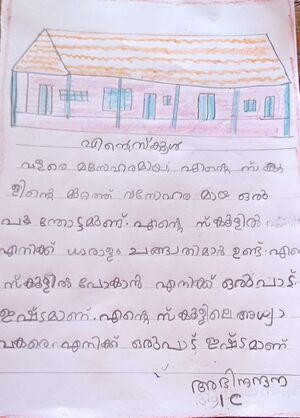 എന്റെസ്കൂൾ
വളരെ മനോഹരമായ എന്റെ സ്കൂ
ളിന്റെ മുറ്റത്ത് മനോഹര മായ ഒരു
പൂന്തോട്ടമുണ്ട്. എന്റെ സ്കൂളിൽ
എനിക്ക് ധാരാളം ചങ്ങാതിമാർ ഉണ്ട്. എന്റെ
സ്കൂളിൽ പോകാൻ എനിക്ക് ഒരുപാട്
ഇഷ്ടമാണ്. എന്റെ സ്കൂളിലെ അധ്യാ
പകരെ എനിക്ക് ഒരുപാട് ഇഷ്ടമാണ്
അഭിനന്ദന
1C